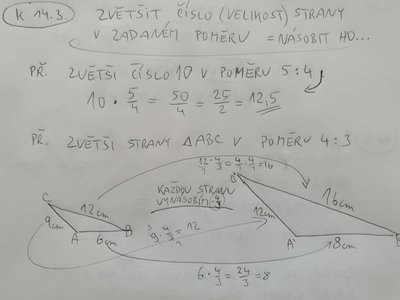 K 14.3.
ZVĚTŠIT ČÍSLO (VELIKOST) STRANY
V ZADANÉM POMĚRU = NÁSOBIT HO...
PŘ. ZVĚTŠI ČÍSLO 10 V POMĚRU 5:4
10 · 5/4 = 50/4 = 25/2 = 12,5
PŘ. ZVĚTŠI STRANY △ABC V POMĚRU 4:3
KAŽDOU STRANU
VYNÁSOBÍM · 4/3
C
12cm
9cm
A
B
6cm
12cm
16cm
A'
8cm
6 · 4/3 = 24/3 = 8